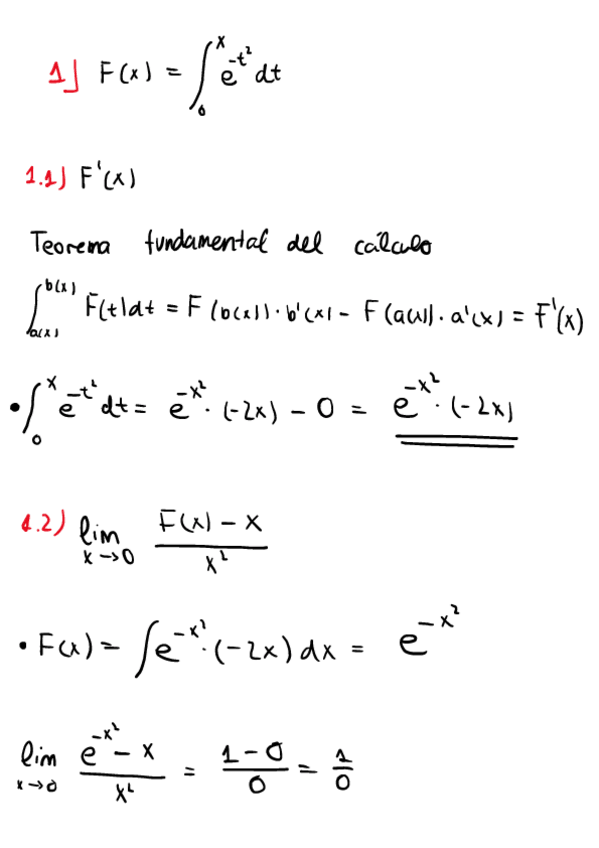 1] F(x) = ∫₀ˣ e^(-t²) dt
1.1) F'(x)
Teorema fundamental del cálculo
∫_{a(x)}^{b(x)} F(t)dt = F(b(x))·b'(x) - F(a(x))·a'(x) = F'(x)
• ∫₀ˣ e^(-t²) dt = e^(-x²)·(-2x) - 0 = e^(-x²)·(-2x)
1.2) lim_{x→0} (F(x) - x)/x²
• F(x) = ∫e^(-x²)·(-2x) dx = e^(-x²)
lim_{x→0} (e^(-x²) - x)/x² = (1-0)/0 = 1/0